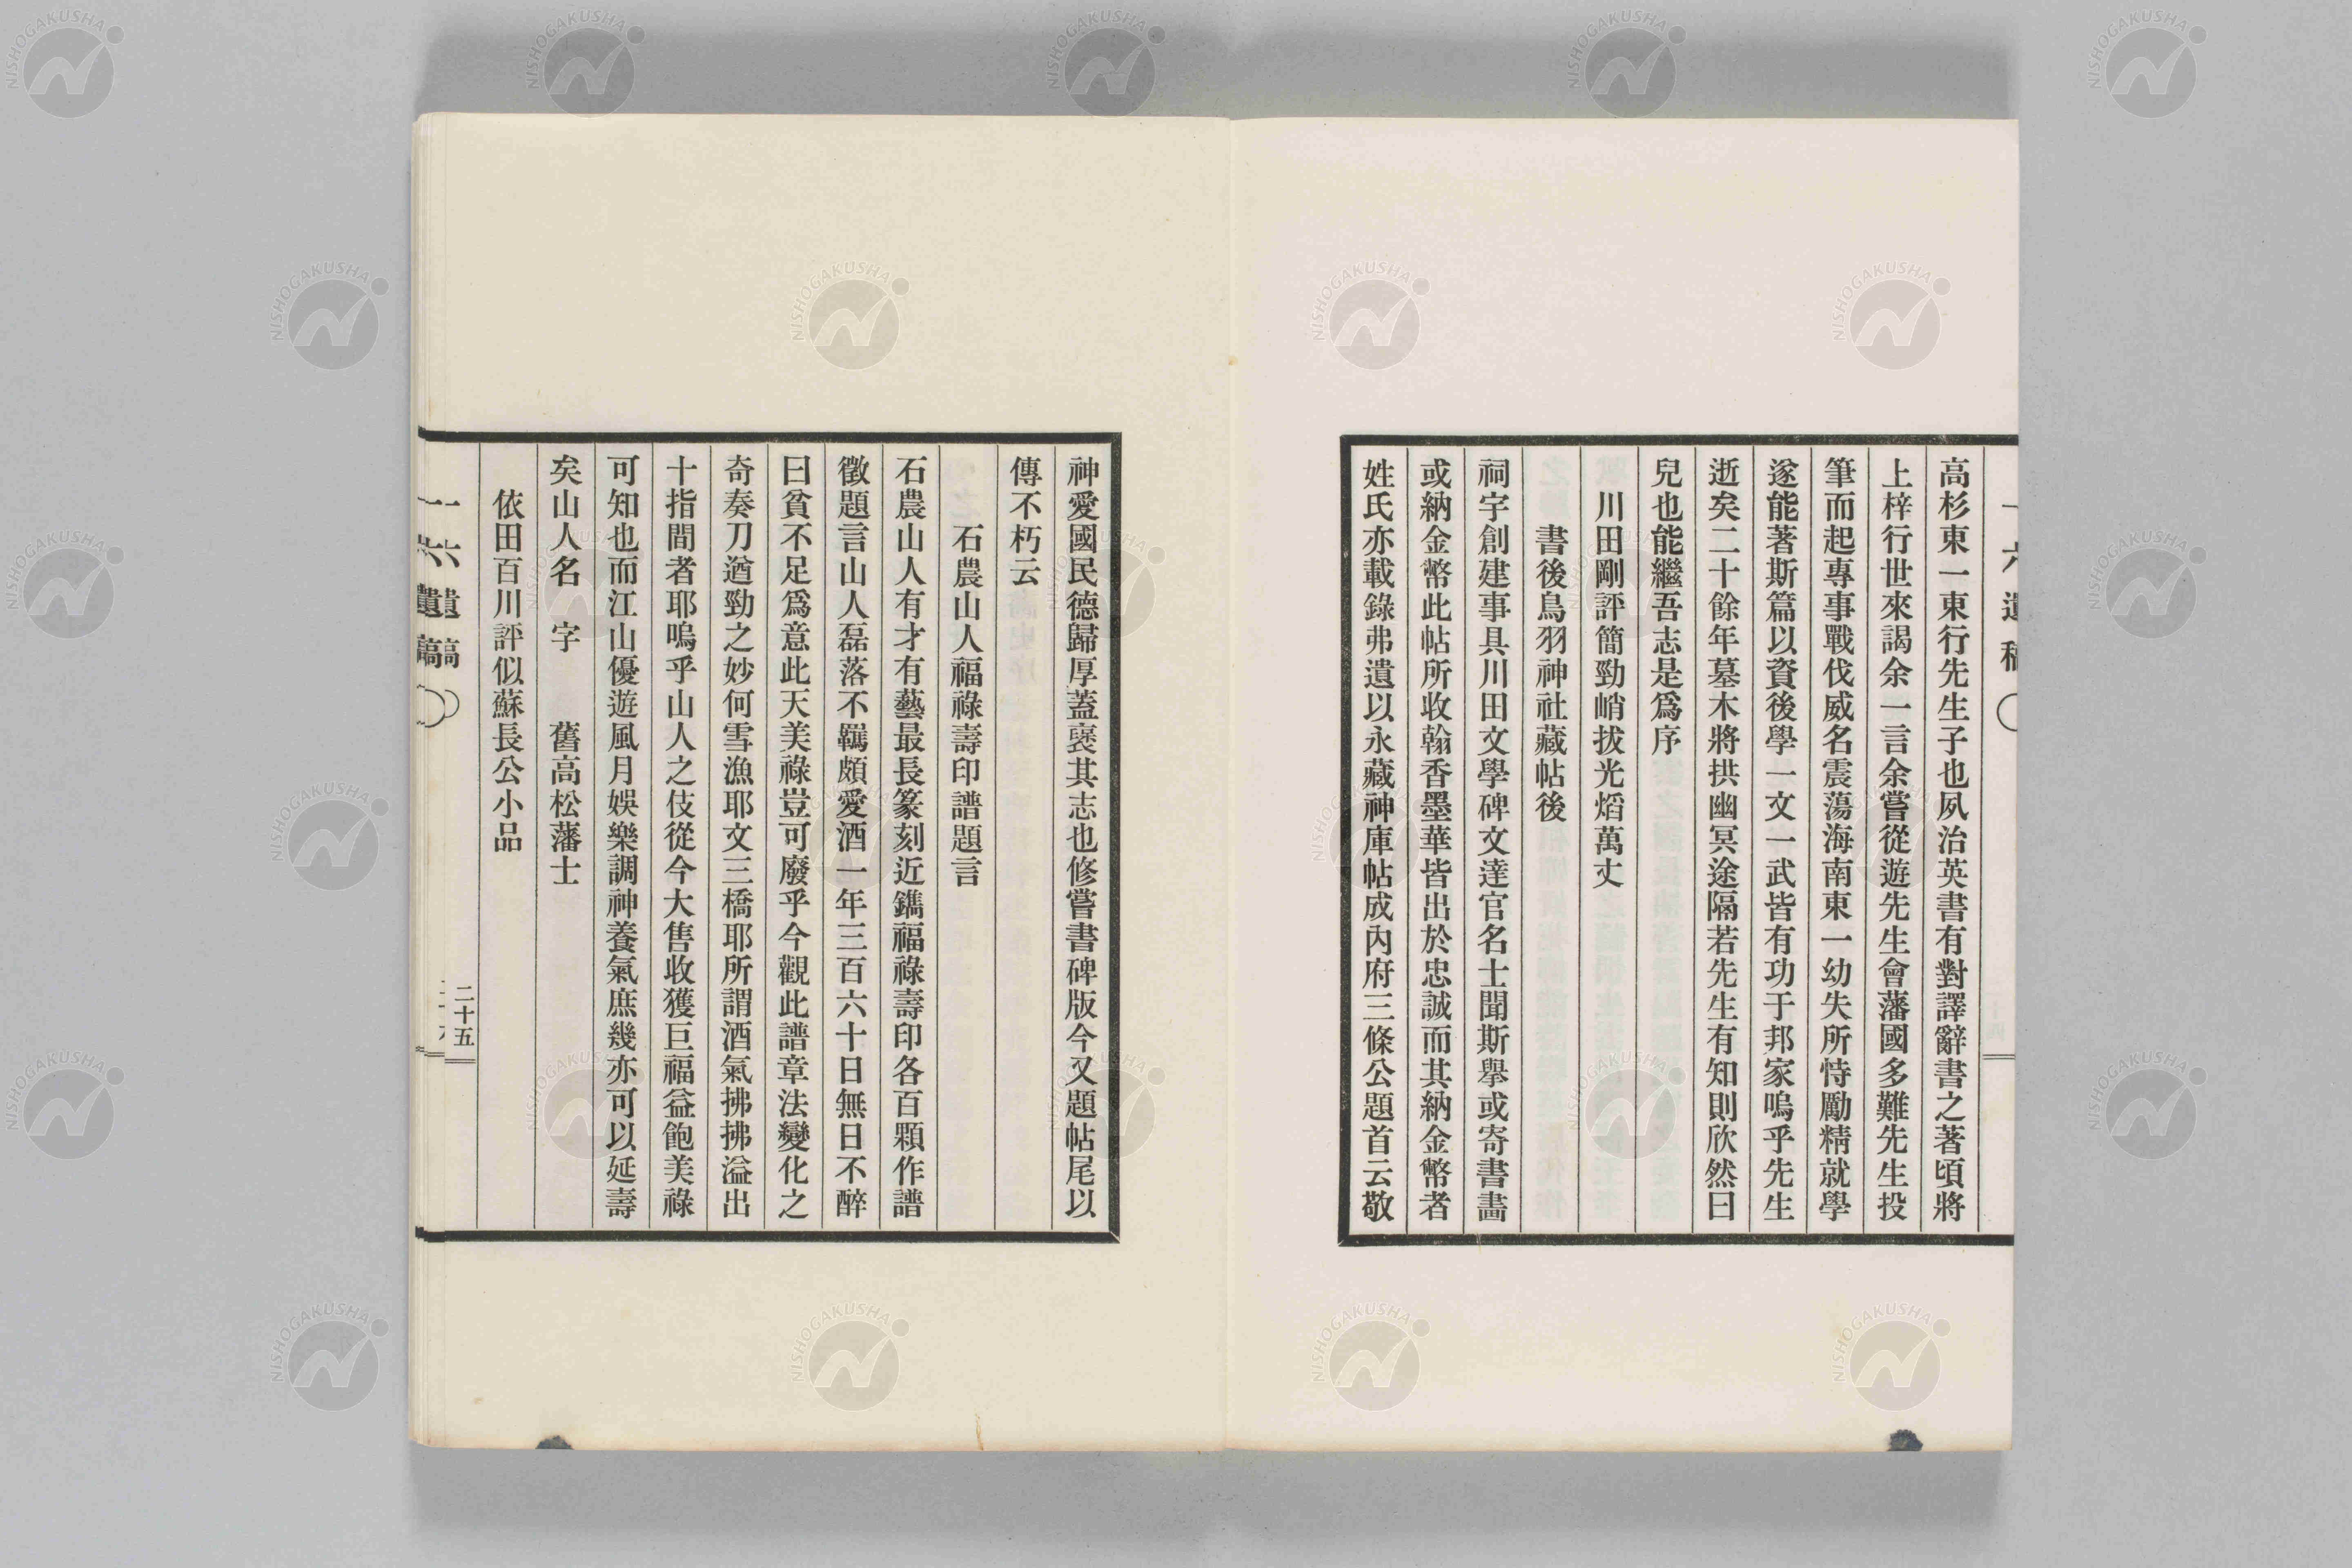 高杉東一東行先生子也夙治英書有對譯辭書之著頃將
上梓行世來謁余一言余嘗從遊先生會藩國多難先生投
筆而起專事戰伐威名震蕩海南東一幼失所恃勵精就學
遂能著斯篇以資後學一文一武皆有功于邦家嗚乎先生
逝矣二十餘年墓木將拱幽冥途隔若先生有知則欣然曰
兒也能繼吾志是爲序
川田剛評簡勁峭拔光熖萬丈
書後鳥羽神社藏帖後
祠宇創建事具川田文學碑文達官名士聞斯擧或寄書畵
或納金幣此帖所收翰香墨華皆出於忠誠而其納金幣者
姓氏亦載錄弗遺以永藏神庫帖成內府三條公題首云敬
神愛國民德歸厚蓋襃其志也修嘗書碑版今又題帖尾以
傳不朽云
石農山人福祿壽印譜題言
石農山人有才有藝最長篆刻近鐫福祿壽印各百顆作譜
徵題言山人磊落不羈頗愛酒一年三百六十日無日不醉
曰貧不足爲意此天美祿豈可廢乎今觀此譜章法變化之
奇奏刀遒勁之妙何雪漁耶文三橋耶所謂酒氣拂拂溢出
十指間者耶嗚乎山人之伎從今大售收獲巨福益飽美祿
可知也而江山優遊風月娛樂調神養氣庶幾亦可以延壽
矣山人名　字　　舊高松藩士
依田百川評似蘇長公小品
一六遺稿
二十五
一六遺稿
NISHOGAKUSHA